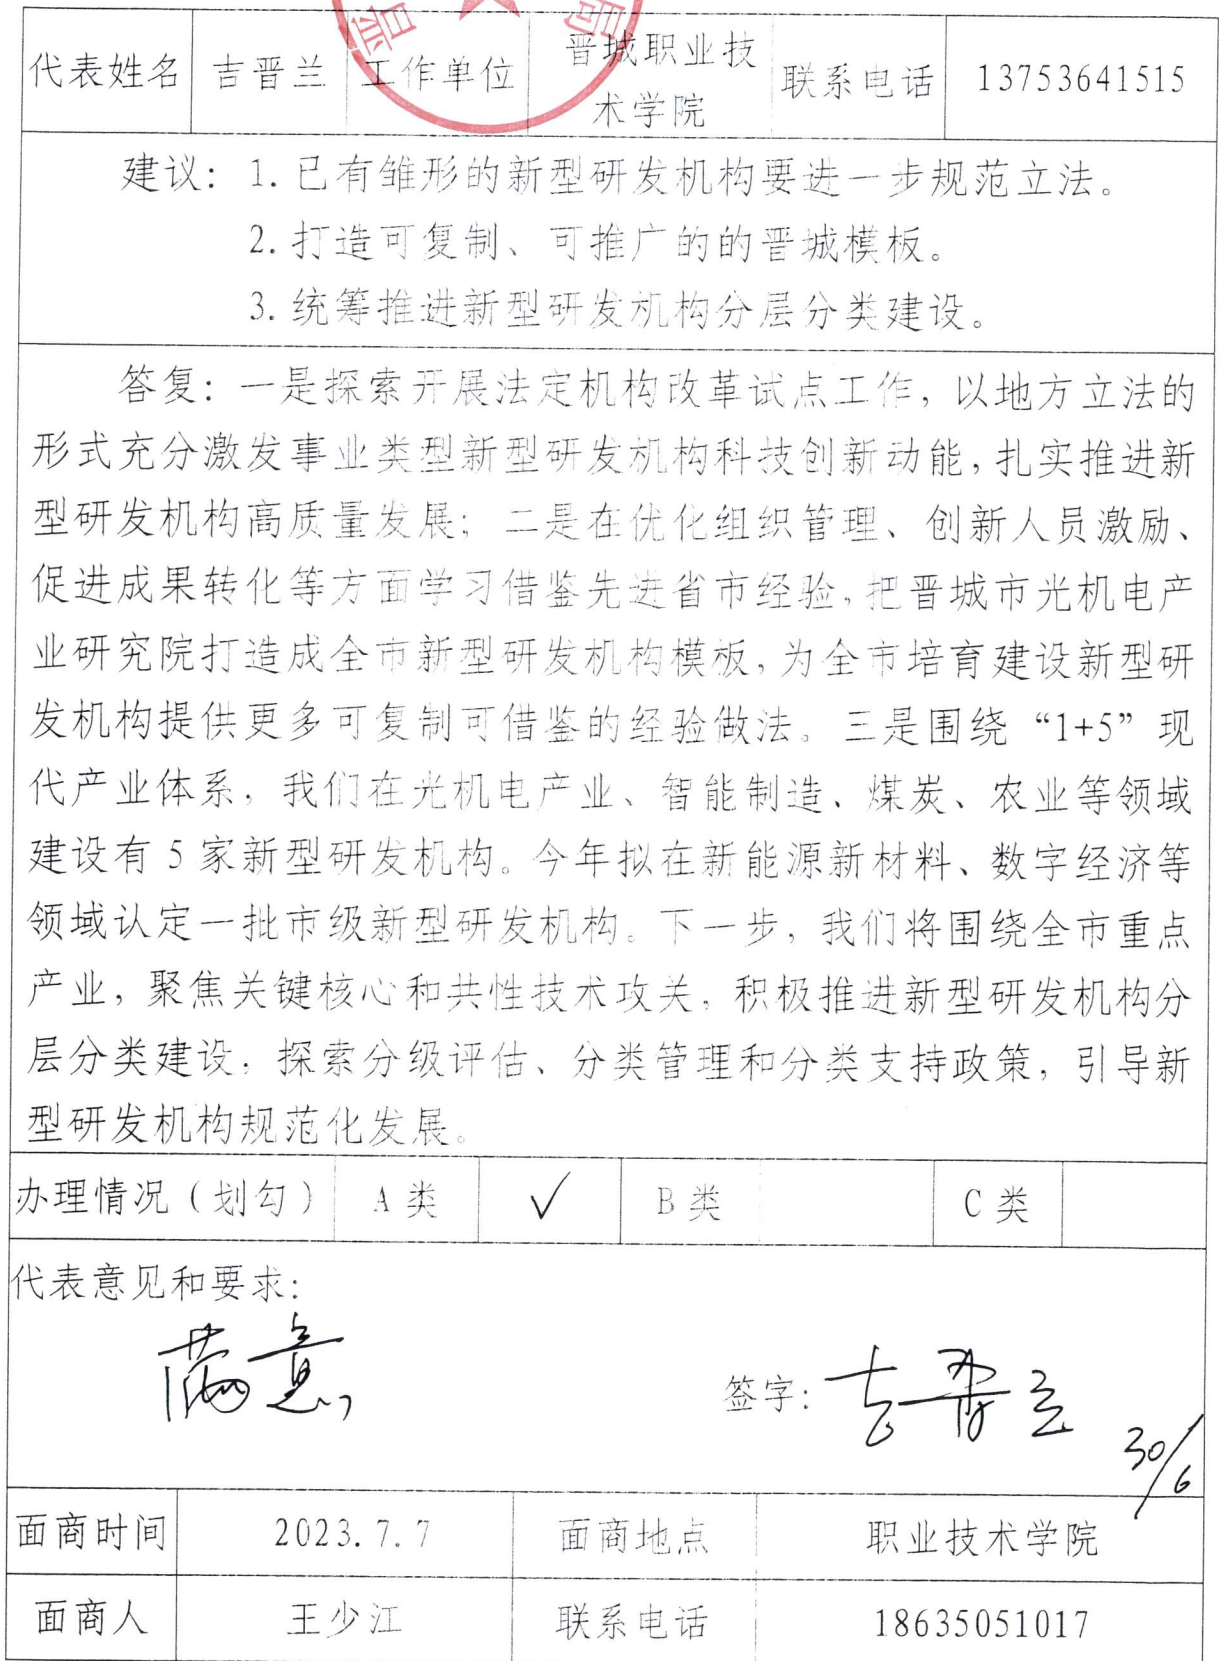 晋 局
代表姓名 吉晋兰 工作单位 晋城职业技术学院 联系电话 13753641515
建议：1.已有雏形的新型研发机构要进一步规范立法。
2.打造可复制、可推广的的晋城模板。
3.统筹推进新型研发机构分层分类建设。
答复：一是探索开展法定机构改革试点工作，以地方立法的
形式充分激发事业类型新型研发机构科技创新动能，扎实推进新
型研发机构高质量发展；二是在优化组织管理、创新人员激励、
促进成果转化等方面学习借鉴先进省市经验，把晋城市光机电产
业研究院打造成全市新型研发机构模板，为全市培育建设新型研
发机构提供更多可复制可借鉴的经验做法。三是围绕“1+5”现
代产业体系，我们在光机电产业、智能制造、煤炭、农业等领域
建设有5家新型研发机构。今年拟在新能源新材料、数字经济等
领域认定一批市级新型研发机构。下一步，我们将围绕全市重点
产业，聚焦关键核心和共性技术攻关，积极推进新型研发机构分
层分类建设，探索分级评估、分类管理和分类支持政策，引导新
型研发机构规范化发展。
办理情况（划勾） A类 √ B类 C类
代表意见和要求：
满意
签字：吉晋兰
30/6
面商时间 2023.7.7 面商地点 职业技术学院
面商人 王少江 联系电话 18635051017